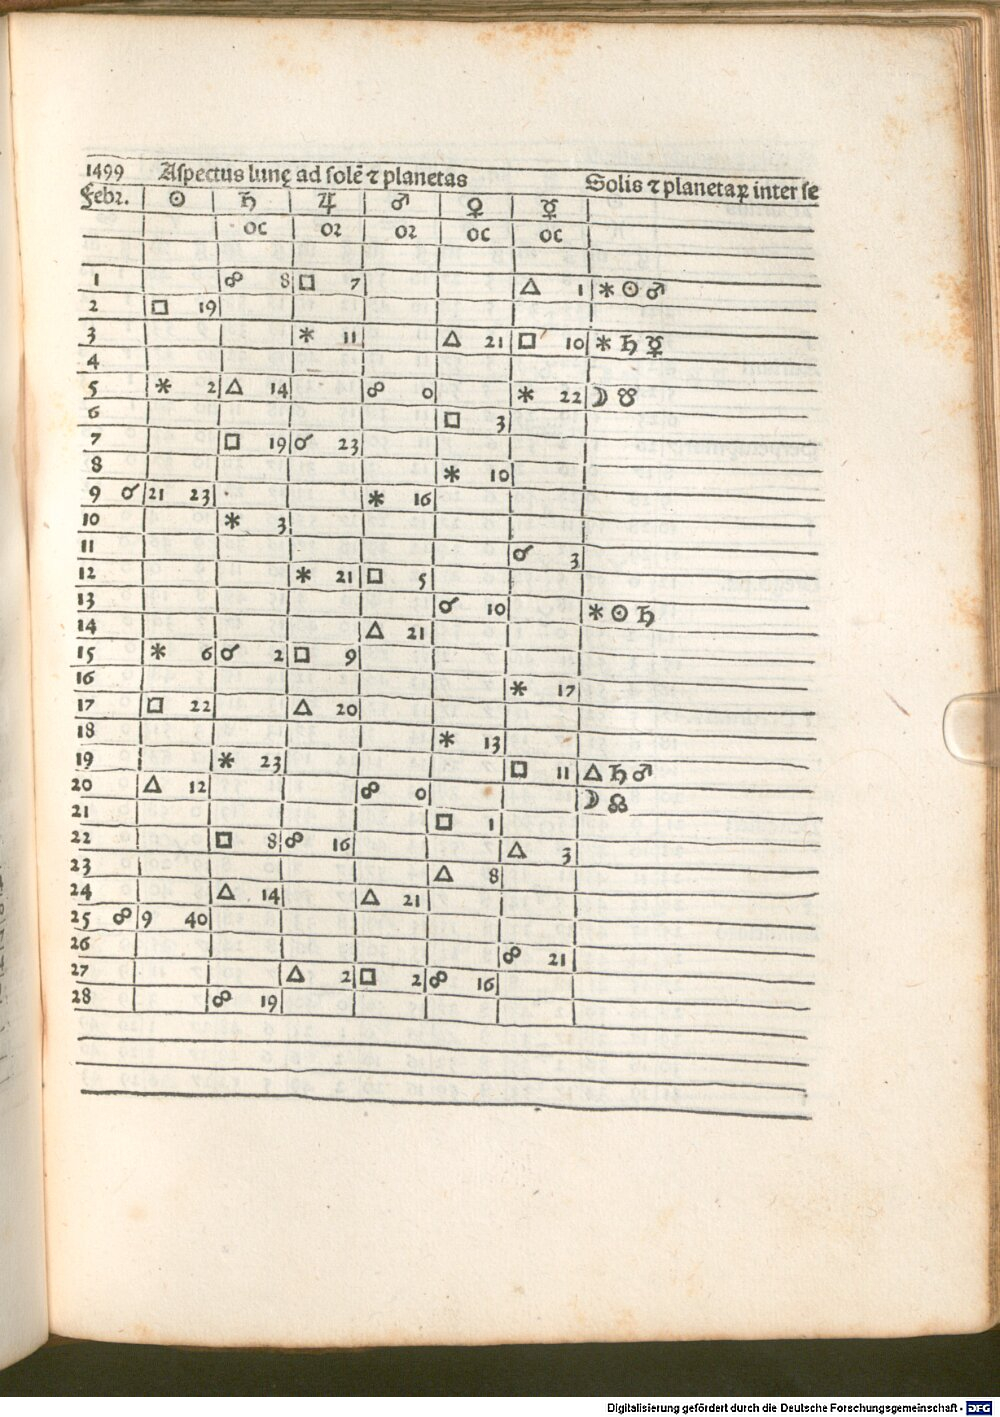 1499 Aſpectus lunę ad ſolē ⁊ planetas Solis ⁊ planetaꝝ inter ſe
Febr. ☉ ♄ ♃ ♂ ♀ ☿
oc oꝛ oꝛ oc oc
1 ☍ 8 □ 7 △ 1 ⚹ ☉ ♂
2 □ 19
3 ⚹ 11 △ 21 □ 10 ⚹ ♄ ☿
4
5 ⚹ 2 △ 14 ☍ 0 ⚹ 22 ☽ ☋
6 □ 3
7 □ 19 ☌ 23
8 ⚹ 10
9 ☌ 21 23 ⚹ 16
10 ⚹ 3
11 ☌ 3
12 ⚹ 21 □ 5
13 ☌ 10 ⚹ ☉ ♄
14 △ 21
15 ⚹ 6 ☌ 2 □ 9
16 ⚹ 17
17 □ 22 △ 20
18 ⚹ 13
19 ⚹ 23 □ 11 △ ♄ ♂
20 △ 12 ☍ 0 ☽ ☊
21 □ 1
22 □ 8 ☍ 16 △ 3
23 △ 8
24 △ 14 △ 21
25 ☍ 9 40
26 ☍ 21
27 △ 2 □ 2 ☍ 16
28 ☍ 19
Digitalisierung gefördert durch die Deutsche Forschungsgemeinschaft - DFG